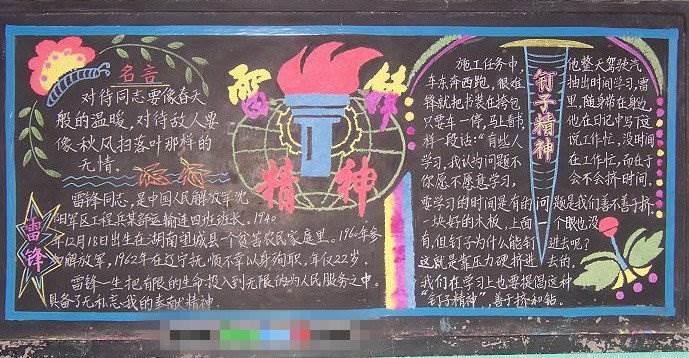 名言
对待同志要像春天
般的温暖,对待敌人要
像秋风扫落叶那样的
无情.
雷锋
精神
雷锋
雷锋同志,是中国人民解放军沈
阳军区工程兵某部运输连四班班长.1940
年12月18日出生在湖南望城县一个贫苦农民家庭里.1960年参
加解放军,1962年在辽宁抚顺不幸以身殉职,年仅22岁.
雷锋一生把有限的生命投入到无限的为人民服务之中.
具备了无私忘我的奉献精神
钉子精神
施工任务中, 他整天驾驶汽
车东奔西跑,很难 抽出时间学习,雷
锋就把书装在挎包 里,随身带在身边,
只要车一停,马上看书, 他在日记中写了这
样一段话:"有些人 说工作忙,没时间
学习,我认为问题不 在工作忙,而在于
你愿不愿意学习, 会不会挤时间.
要学习的时间是有的 问题是我们善不善于挤.
一块好的木板,上面 个眼也没
有,但钉子为什么能钉 进去呢?
这就是靠压力硬挤进 去的.
我们在学习上也要提倡这种
"钉子精神",善于挤和钻.